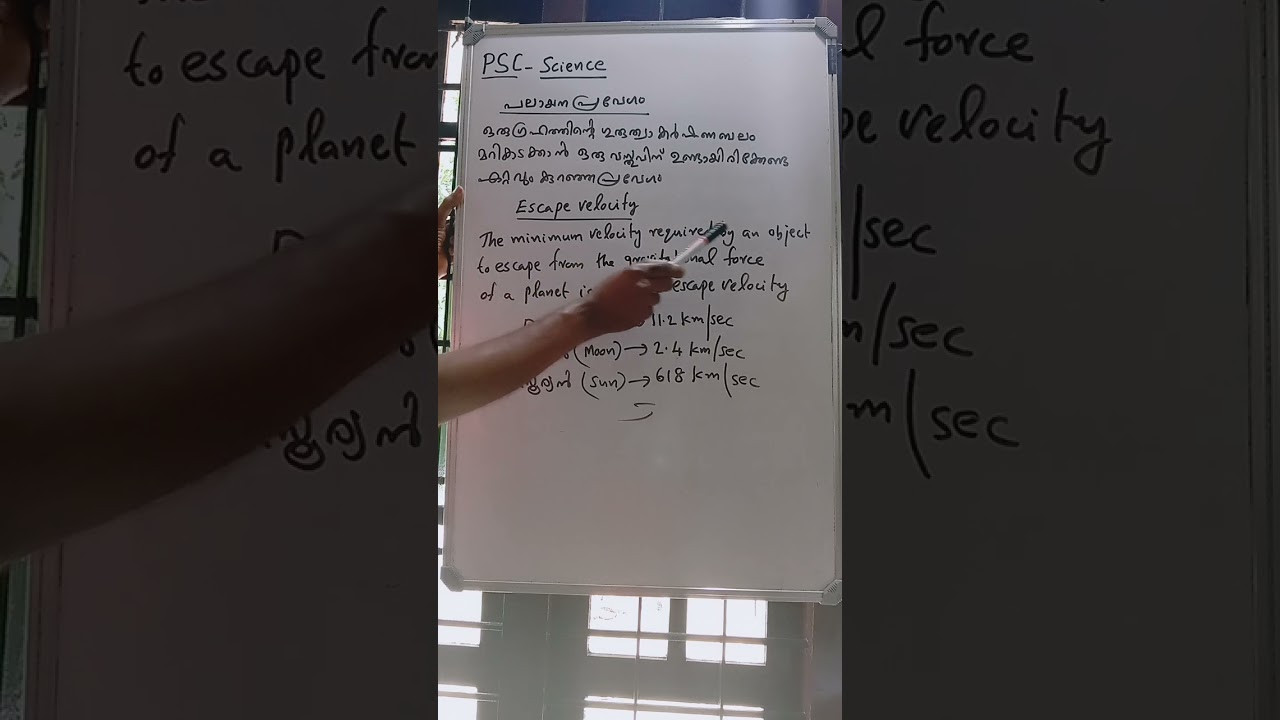 PSC - Science
പലായന പ്രവേഗം
ഒരു ഗ്രഹത്തിന്റെ ഗുരുത്വാകർഷണബലം
മറികടക്കാൻ ഒരു വസ്തുവിന് ഉണ്ടായിരിക്കേണ്ട
ഏറ്റവും കുറഞ്ഞ പ്രവേഗം
Escape velocity
The minimum velocity required by an object
to escape from the gravitational force
of a planet is escape velocity
11.2 km/sec
(Moon) → 2.4 km/sec
സൂര്യൻ (Sun) → 618 km/sec